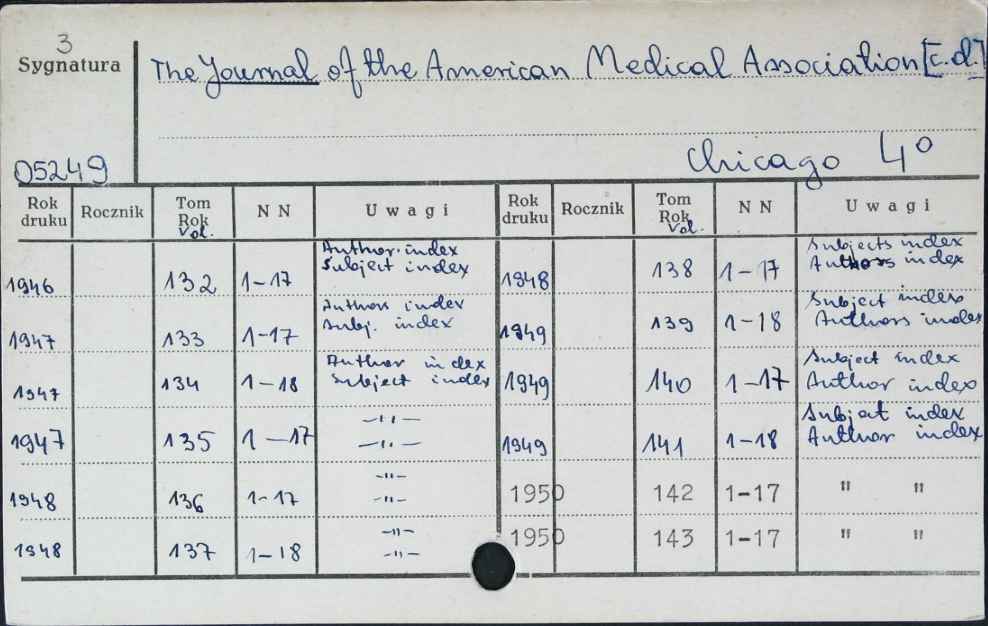 3
Sygnatura
The Journal of the American Medical Association [c.d.]
05249
Chicago 4°
Rok druku Rocznik Tom Rok Vol. NN Uwagi Rok druku Rocznik Tom Rok Vol. NN Uwagi
1946 132 1-17 Author. index Subject index 1948 138 1-17 Subjects index Authors index
1947 133 1-17 Authors index Subj. index 1949 139 1-18 Subject index Authors index
1947 134 1-18 Author index Subject index 1949 140 1-17 Subject index Author index
1947 135 1-17 -"- -"- 1949 141 1-18 Subject index Author index
1948 136 1-17 -"- -"- 1950 142 1-17 " "
1948 137 1-18 -"- -"- 1950 143 1-17 " "